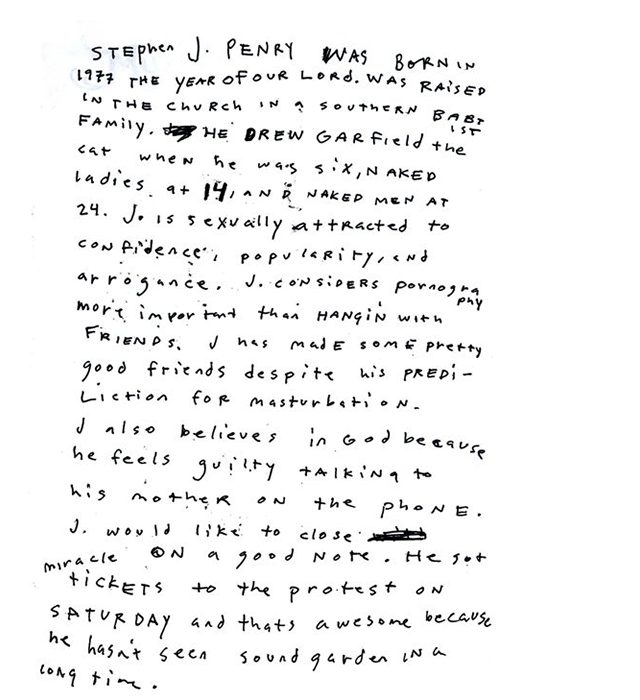 STEphen J. PENRY WAS BORN IN
1977 THE YEAR OF OUR LORD. WAS RAISED
IN THE CHURCH IN a SOUTHERN BABTIST
FAMILY. HE DREW GARfield the
cat when he was six, NAKED
ladies at 14, AND NAKED MEN AT
24. J. is sexually attracted to
confidence, popularity, and
arrogance. J. CONSIDERS pornography
more important than HANGIN with
FRIENDS. J has madE SOME pretty
good friends despite his PREDi-
Liction foR masturbatioN.
J also believes in God because
he feels guilty tALKiNg to
his motheR ON the phoNE.
J. would like to close
miracle ON a good NOTE. He got
tICKETS to the protest ON
SATURDAY and thats awesome because
he hasn't seen soundgarden IN a
long time.